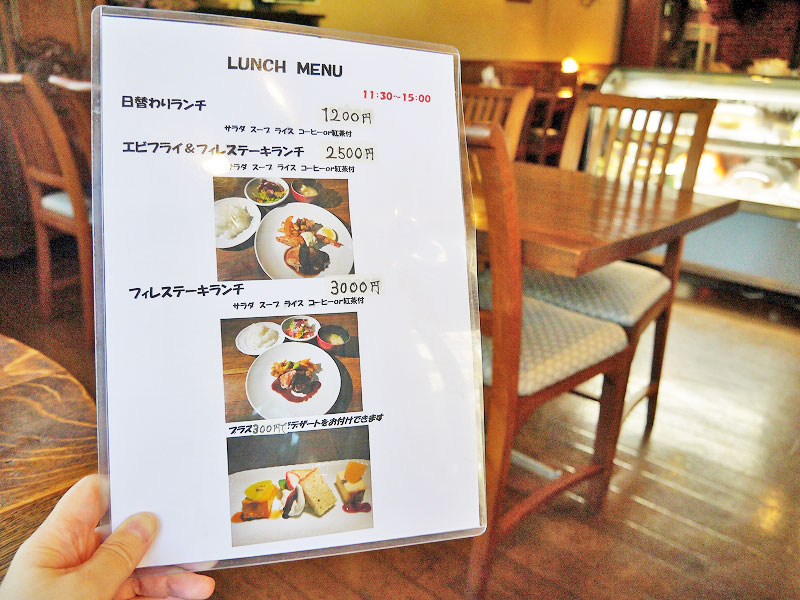 LUNCH MENU
11:30～15:00
日替わりランチ
1200円
サラダ スープ ライス コーヒーor紅茶付
エビフライ＆フィレステーキランチ 2500円
サラダ スープ ライス コーヒーor紅茶付
フィレステーキランチ 3000円
サラダ スープ ライス コーヒーor紅茶付
プラス300円で デザートをお付けできます